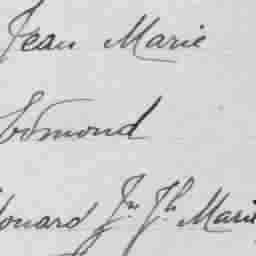 Jean Marie
Edmond
Edouard Jn Jh Marie